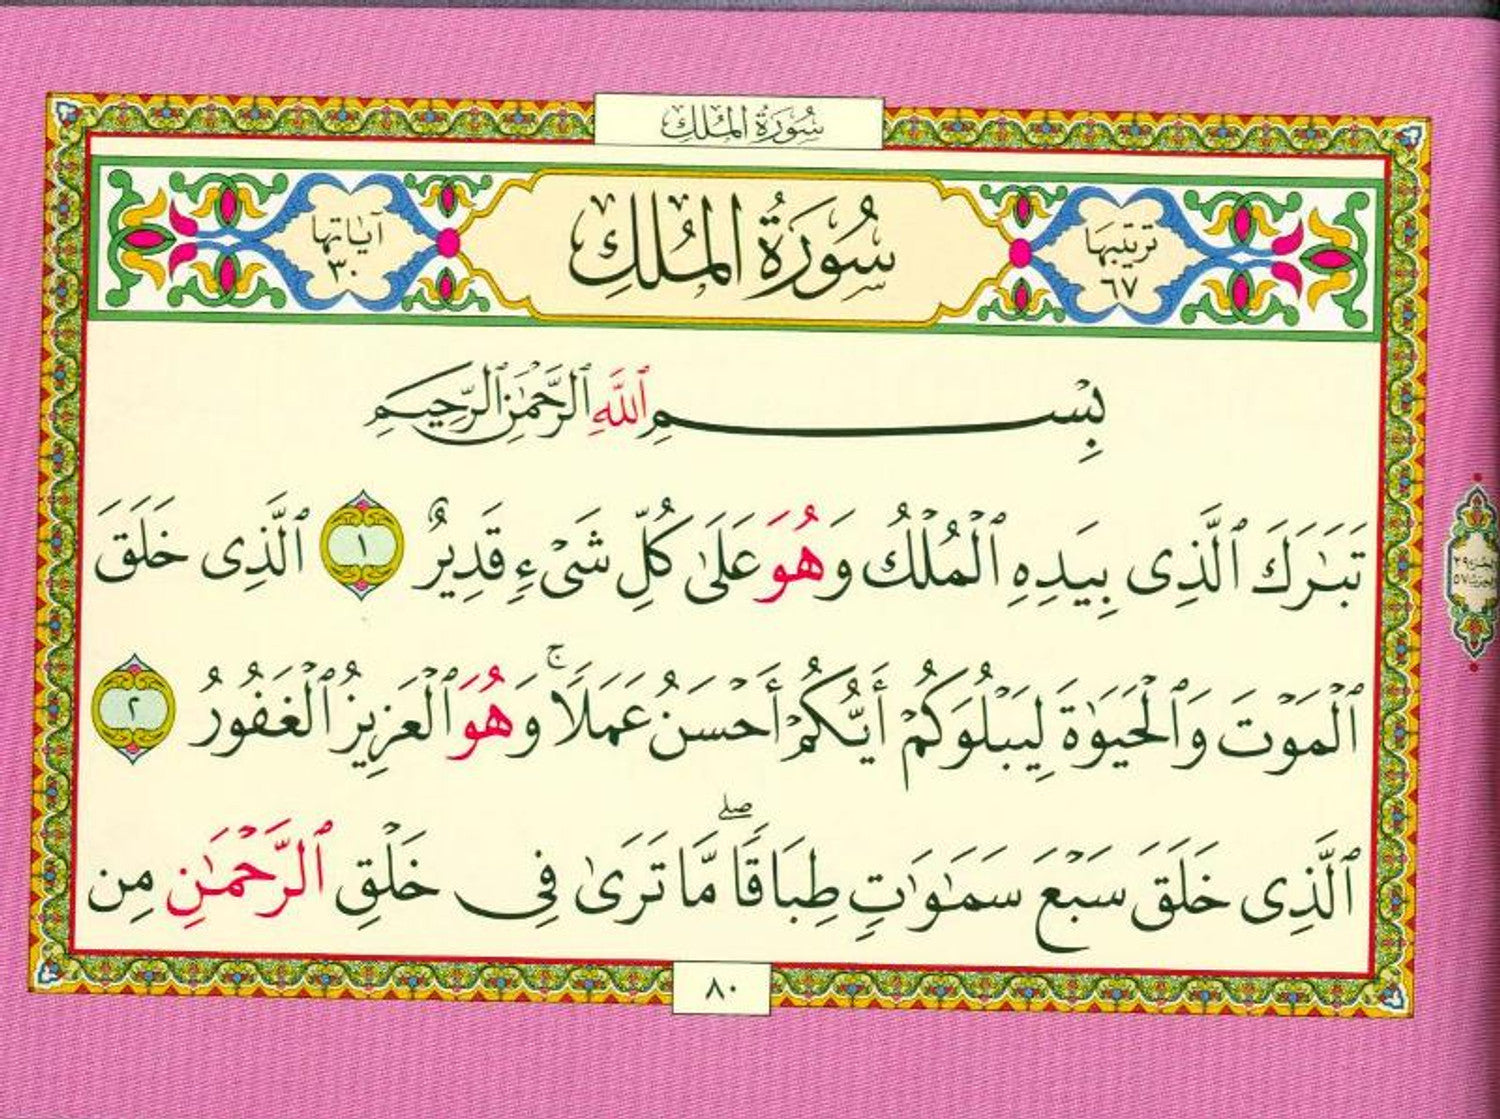 سُورَةُ المُلكِ
ترتيبها
٦٧
سُورَةُ المُلكِ
آياتها
٣٠
بِسْمِ ٱللَّهِ ٱلرَّحْمَٰنِ ٱلرَّحِيمِ
تَبَٰرَكَ ٱلَّذِى بِيَدِهِ ٱلْمُلْكُ وَهُوَ عَلَىٰ كُلِّ شَىْءٍ قَدِيرٌ ١ ٱلَّذِى خَلَقَ
ٱلْمَوْتَ وَٱلْحَيَوٰةَ لِيَبْلُوَكُمْ أَيُّكُمْ أَحْسَنُ عَمَلًا ۚ وَهُوَ ٱلْعَزِيزُ ٱلْغَفُورُ ٢
ٱلَّذِى خَلَقَ سَبْعَ سَمَٰوَٰتٍ طِبَاقًا ۖ مَّا تَرَىٰ فِى خَلْقِ ٱلرَّحْمَٰنِ مِن
٨٠
الجزء ٢٩
الحزب ٥٧